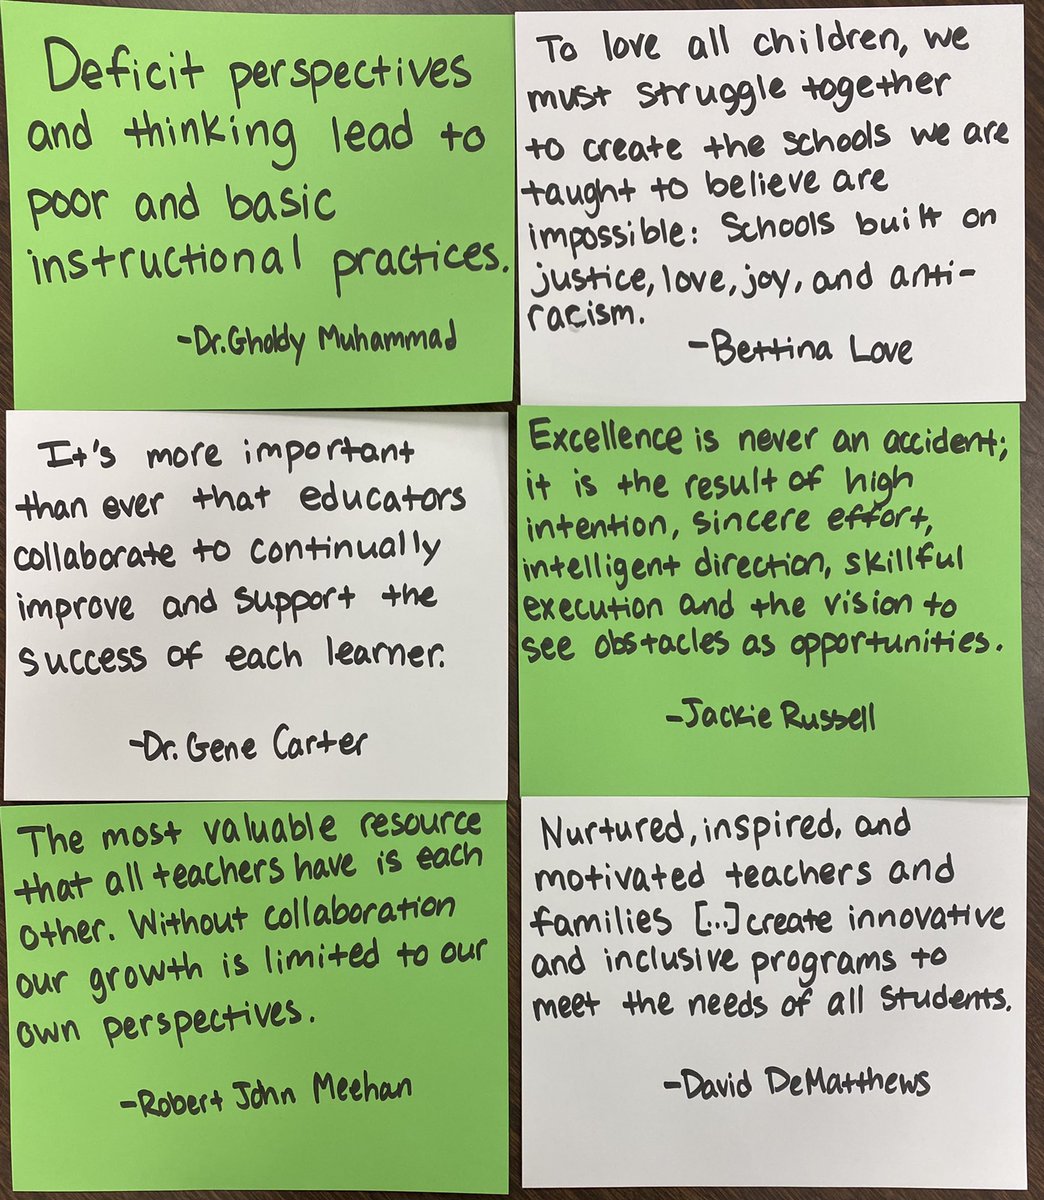 Deficit perspectives
and thinking lead to
poor and basic
instructional practices.
-Dr. Gholdy Muhammad
To love all children, we
must struggle together
to create the schools we are
taught to believe are
impossible: Schools built on
justice, love, joy, and anti-
racism.
-Bettina Love
It's more important
than ever that educators
collaborate to continually
improve and support the
success of each learner.
-Dr. Gene Carter
Excellence is never an accident;
it is the result of high
intention, sincere effort,
intelligent direction, skillful
execution and the vision to
see obstacles as opportunities.
-Jackie Russell
The most valuable resource
that all teachers have is each
other. Without collaboration
our growth is limited to our
own perspectives.
-Robert John Meehan
Nurtured, inspired, and
motivated teachers and
families [...] create innovative
and inclusive programs to
meet the needs of all students.
-David DeMatthews